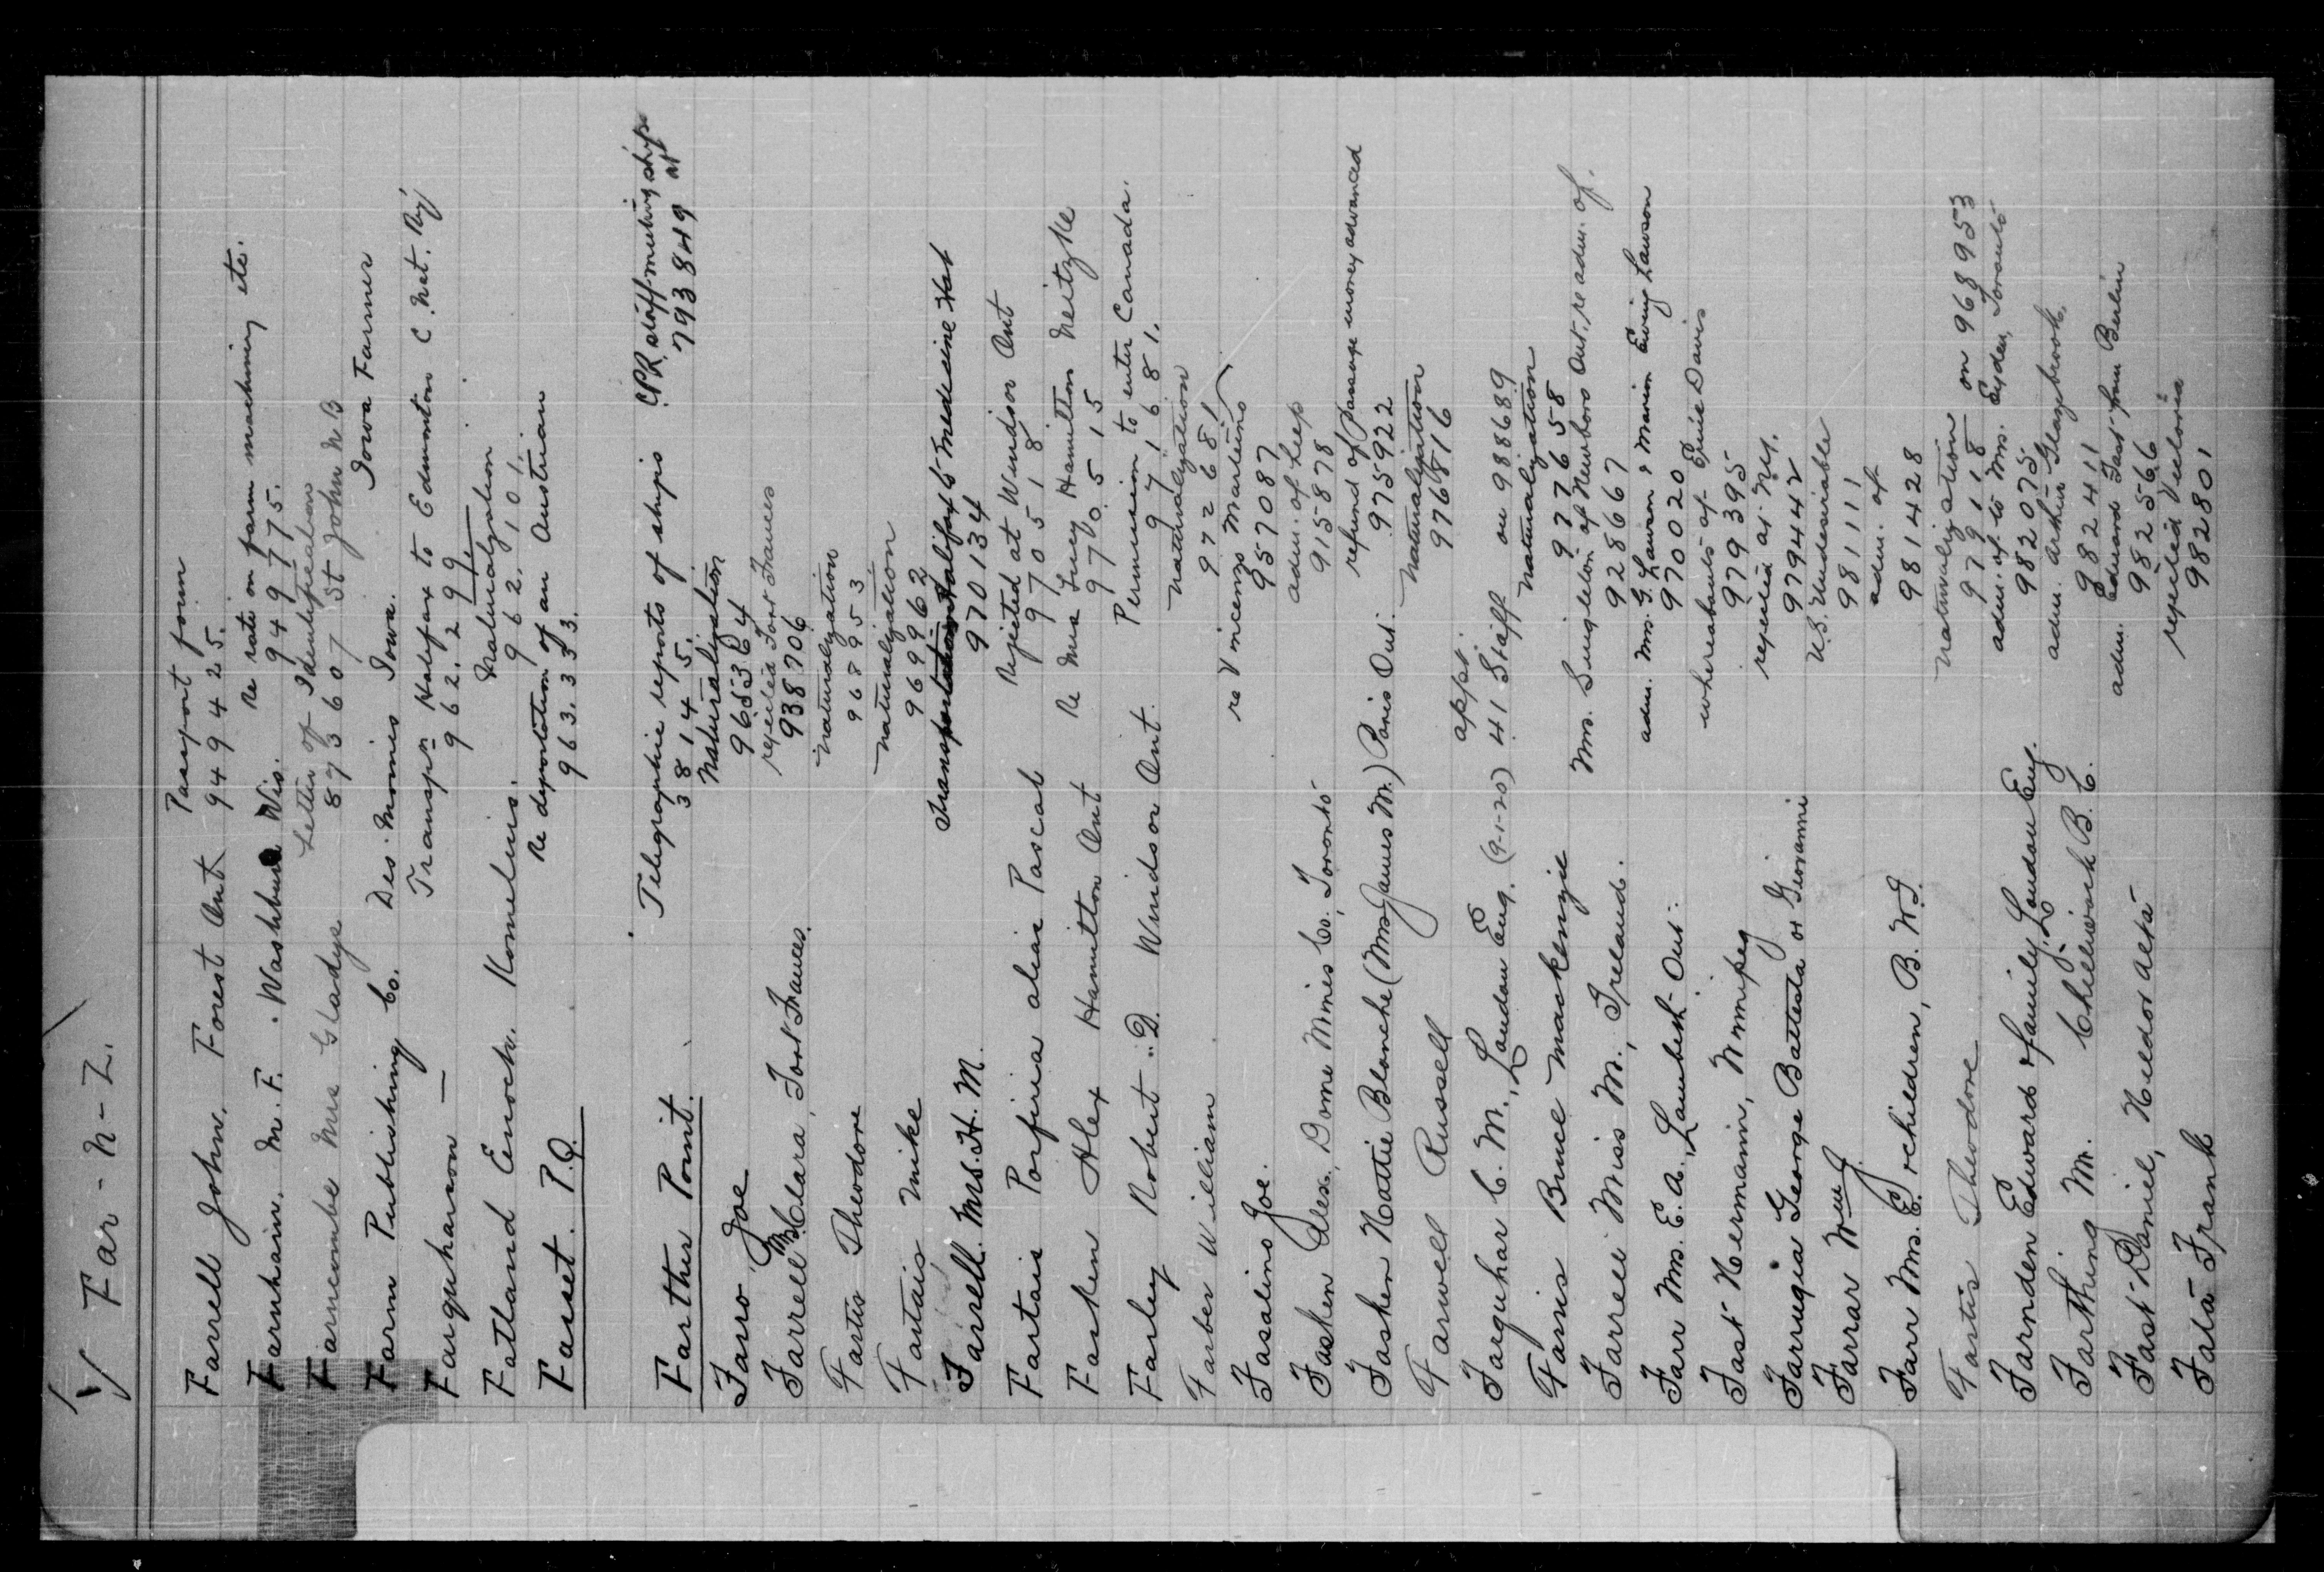 Far - N - Z.
Farrell John, Forest Ont. Passport form
949425.
Farnham, M. F. Washburn Wis. Re rate on farm machinery etc.
949775.
Farncombe Mrs Gladys Letter of Identification
873607 St John N B
Farm Publishing Co. Des Moines Iowa. Iowa Farmer
Farquharson — Transpn Halifax to Edmonton C. Nat. Ry
962.299.
Fatland Enoch Kornelius. Naturalization
962.101.
Fasset. P.Q. Re deportation of an Austrian
963.333.
Farther Point. Telegraphic reports of ships CPR staff meeting ships at
38145. 793849
Farro Joe Naturalization
965364
Farrell Mrs Clara, Fort Frances. rejected Fort Frances
938706
Fartis Theodore naturalization
968953
Fartais Mike naturalization
969962
Farrell. Mrs. H. M. Transportation Halifax to Medicine Hat
970134
Fartais Porfiria alias Pascal Rejected at Windsor Ont
970518
Fasken Alex Hamilton Ont Re Mrs Lucy Hamilton Neitzke
970515
Farley Robert D. Windsor Ont. Permission to enter Canada.
971681.
Farber William Naturalization
972681
Fasalino Joe. re Vincenzo Martino
957087
Fasken Alex, Dome Mines Co., Toronto adm. of Leep
915878
Fasken Hattie Blanche (Mrs James M.) Paris Ont. refund of passage money advanced
975922
Farwell Russell Naturalization
976816
Farquhar C. M., London Eng. (9-1-20) appt.
41 Staff on 988689
Farris Bruce Mackenzie Naturalization
977658
Farrell Miss M., Ireland. Mrs. Singleton of Newboro Ont. re adm. of.
928667
Farr Mrs. E. A., Lambeth Ont. adm. Mrs. G. Lawson & Marion Ewing Lawson
970020
Fast Hermann, Winnipeg whereabouts of Ernie Davis
979395
Farrugia George Battesta or Giovanni rejected at N.Y.
979442
Farrar Wm J. U.S. Undesirable
981111
Farr Mrs. E. & children, B. W. I. adm. of
981428
Fartis Theodore naturalization
979118 on 968953
Farnden Edward & family, London Eng. adm. of to Mrs. Eyden, Toronto
982075
Farthing M. Chilliwack B. C. adm. Arthur Glazybrook.
982411
Fast Daniel, Neldor Alta adm. Eduard Fast from Berlin
982566
Fata Frank rejected Victoria
982801